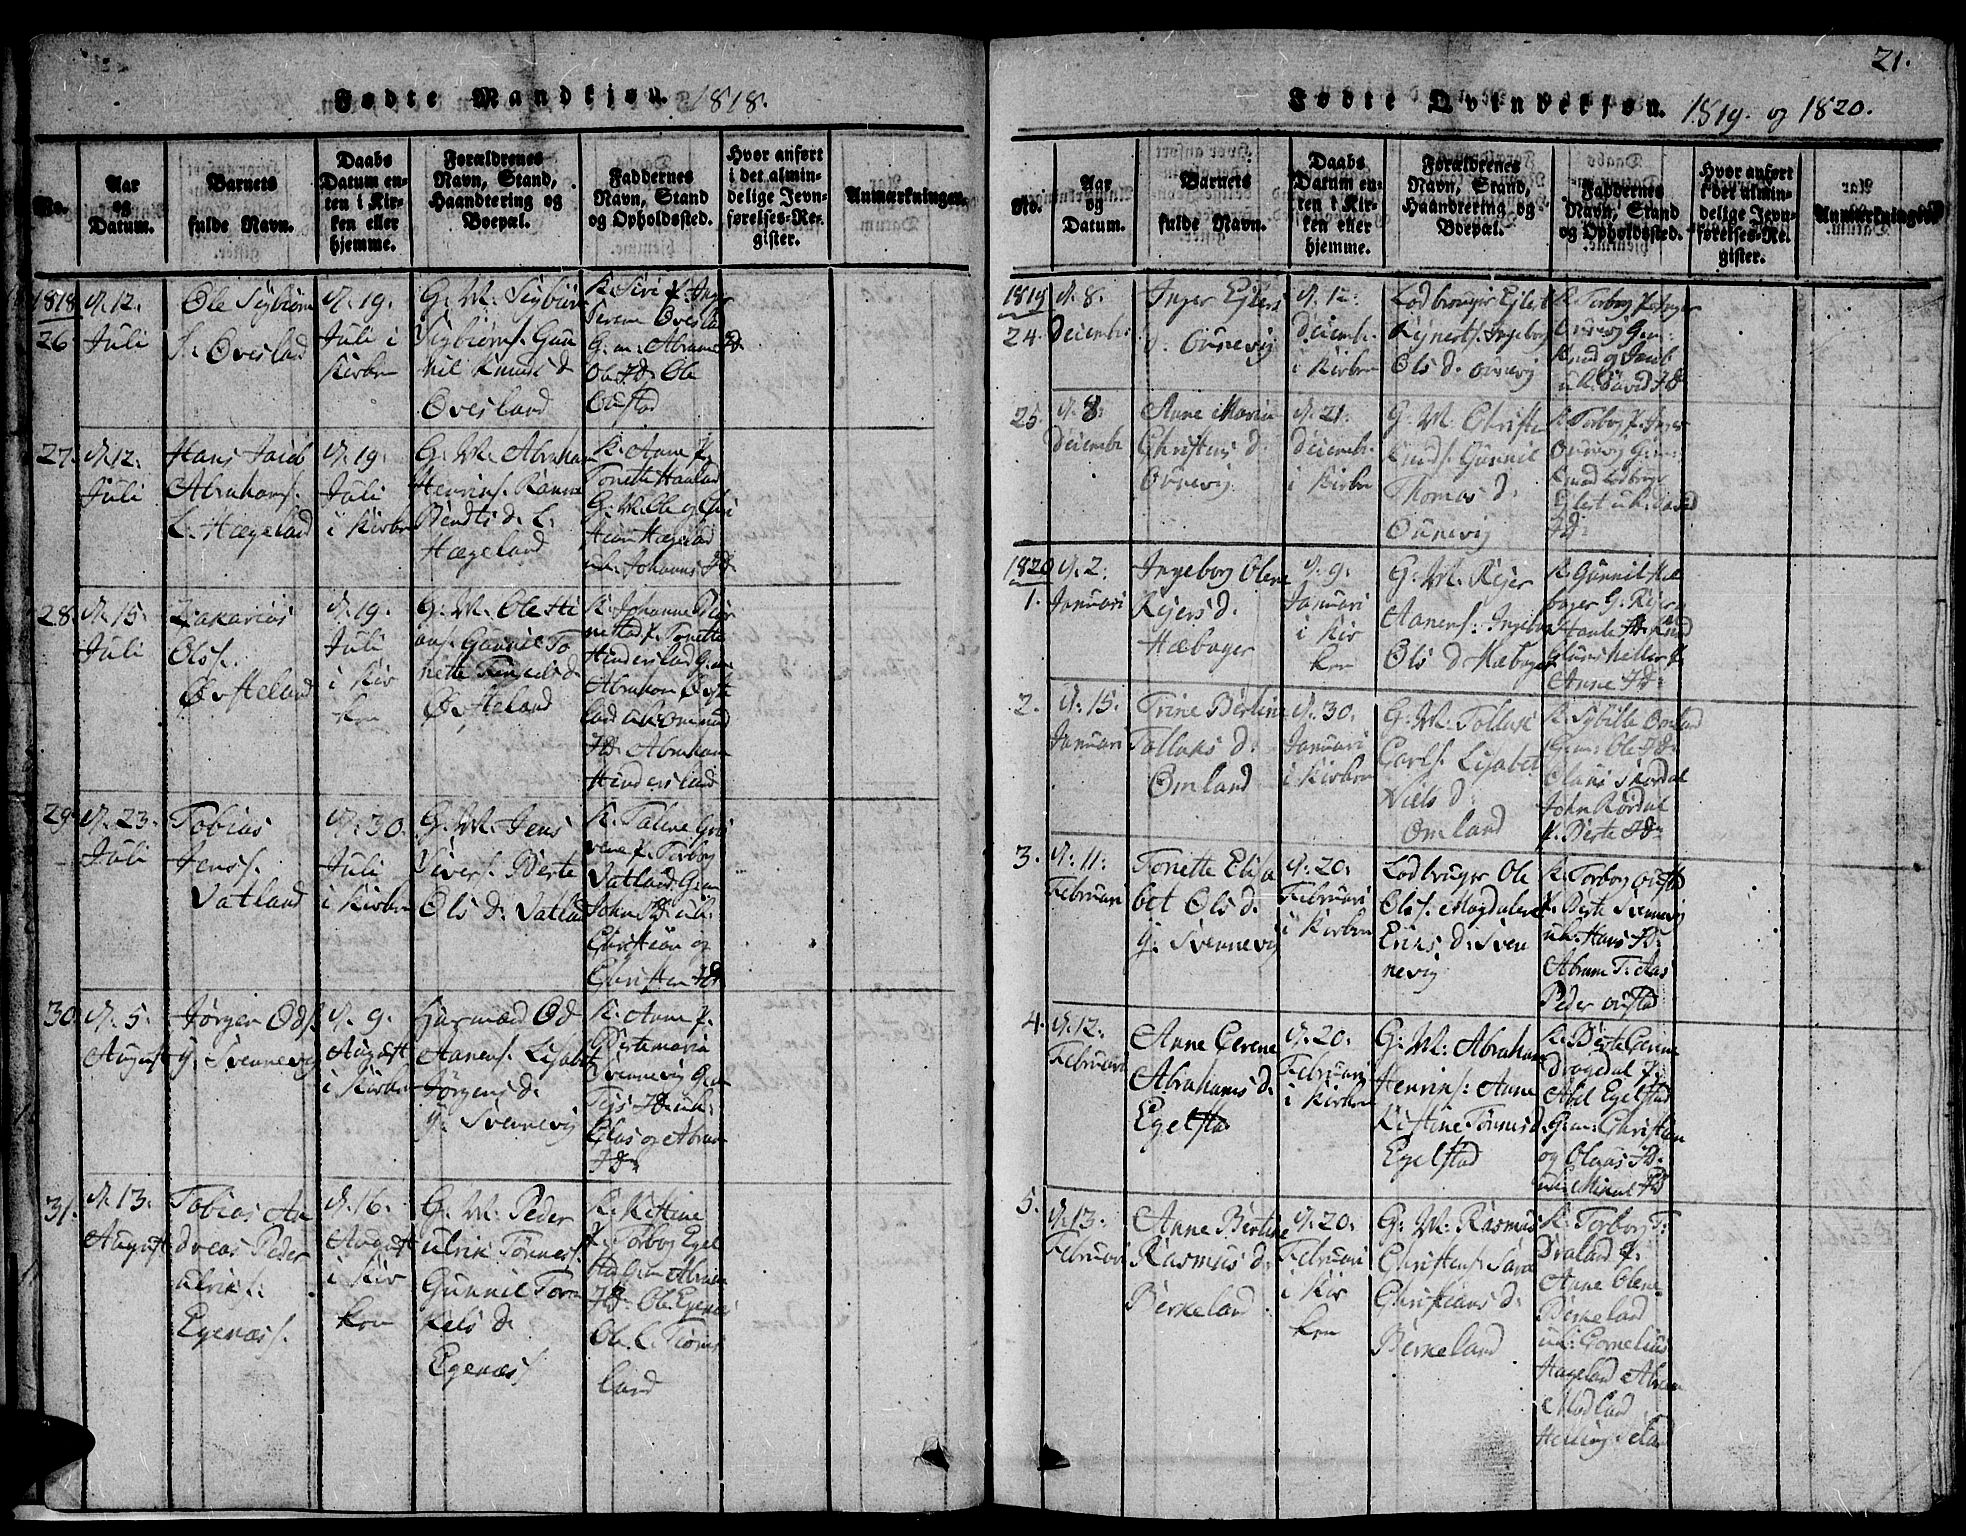 Fødte Mandkjøn. 1818.
No.
Aar
og
Datum.
Barnets
fulde Navn.
Daabs
Datum en-
ten i Kir-
ken eller
hjemme.
Forældrenes
Navn, Stand,
Haandtering og
Boepæl.
Faddernes
Navn, Stand
og Opholdssted.
Hvor anført
i det almin-
delige Jevn-
førelses-Re-
gister.
Anmærkninger.
1818
26.
d. 12.
Juli
Ole Sigbiørn
S. Øvesland
d. 19.
Juli i
Kirken
G. M. Sigbiørn
Sigbiørns. Gun
nil Knuds d
Øvesland
K. Siri p. Inger
Serene Øvesla
G. m. Abram JD
Ole JD: Ole
Oustad
27.
d. 12.
Juli
Hans Jacob
Abrahams.
L. Hægeland
d. 19.
Juli
i Kirken
G. M. Abraham
Henriks.
Bendts d. L.
Hægeland
K. Anne p.
Tonette Haaland
G. M. Ole og
Hægeland
uk. Johannes JD.
28.
d. 15.
Juli
Zakarias
Ols.
Øvsteland
d. 19.
Juli
i Kir
ken
G. M. Ole Sti
ans. Gunnil To
nette d
Øvsteland
K. Johanne
p. Tonette
Hindersland G. m.
Abraham Øvste
land uk. Omund
JD. Abraham
Hindersland
29.
d. 23.
Juli
Tobias
Jenss.
Vatland
d. 30.
Juli
i Kirken
G. M. Jens
Sivers. Berte
Ols d. Vatland
K. Taline
p. Torbor
Vatland G. m
John JD uk.
Christian og
Christen JD
30.
d. 5.
August
Jørgen Ods.
y. Svennevig
d. 9.
August
i Kirken
Huusmand Od
Aanens. Lisabet
Jørgens d.
y. Svennevig
K. Anne p.
Bertemaria
Svennevig G. m
Teis JD uk.
Claus og Abram
JD
31.
d. 13.
August
Tobias An
dreas Peder
Ulriks.
Egenæs.
d. 16.
August
i Kir
ken
G. M. Peder
Ulrik Tønnes.
Gunnil Torn
Kels d.
Egenæs
K. Kistine
p. Torbor Egel
stad G. m. Abram
JD. Ole Egenæs
Ole L.
land
21.
Fødte Qvindekjøn. 1819. og 1820.
No.
Aar
og
Datum.
Barnets
fulde Navn.
Daabs
Datum en-
ten i Kir-
ken eller
hjemme.
Forældrenes
Navn, Stand,
Haandtering og
Boepæl.
Faddernes
Navn, Stand
og Opholdssted.
Hvor anført
i det almin-
delige Jevn-
førelses-Re-
gister.
Anmærkninger
1819
24.
d. 8.
Decembr
Inger Ejlers
d. Ounevig
d. 12.
Decembr.
i Kirken
Lodbruger Ejlert
Rejnerts. Ingeborg
Ols d. Ounevig
K. Torbor p. Inger
Ounevig G. m.
Knud og Jacob
uk. David JD
25.
d. 8.
Decembr
Anne Maria
Christens d.
Ounevig
d. 21.
Decembr.
i Kirken
G. M. Christen
Knuds. Gunnil
Thomas d.
Ounevig
K. Torbor p. Inger
Ounevig G. m.
Knud Lodbruger
Ejlert uk. David
JD.
1820
1.
d. 2.
Januari
Ingeborg Olene
Rejers d.
Hæbager
d. 9.
Januari
i Kir
ken
G. M. Rejer
Aanens. Ingebor
Ols d Hæbager
K. Gunnil Hæ
bager G. Rejer
JD Knud
p.
Anne JD.
2.
d. 15.
Januari
Trine Bertine
Tollaks d.
Omland
d. 30.
Januari
i Kirken
G. M. Tollak
Carls. Lisabet
Niels d.
Omland
K. Sybille Omland
G. m. Ole JD.
John Rørdal
p. Berte JD
3.
d. 11.
Februari
Tonette Elisa
bet Ols d.
y. Svennevig
d. 20.
Februari
i Kirken
Lodbruger Ole
Ols. Magdalene
Eriks d. Sven
nevig
K. Torbor Oustad
p. Berte Svennevig
uk. Hans JD.
Abram T. Aas
Peder Oustad
4.
d. 12.
Februari
Anne Cerene
Abrahams d.
Egelstad
d. 20.
Februari
i Kirken
G. M. Abraham
Henriks. Anne
Kistine Tønnes d.
Egelstad
K. Berte Cerene
Dragedal p.
Abel Egelstad
G. m. Christian
og Olaus JD.
uk. Mikal JD
5.
d. 13.
Februari
Anne Bertine
Rasmus d.
Birkeland
d. 20.
Februari
i Kir
ken
G. M. Rasmus
Christens. Sara
Christians d.
Birkeland
K. Torbor T.
Braland p.
Anne Olene
Birkeland
uk. Cornelius
Hageland Abram
Modland